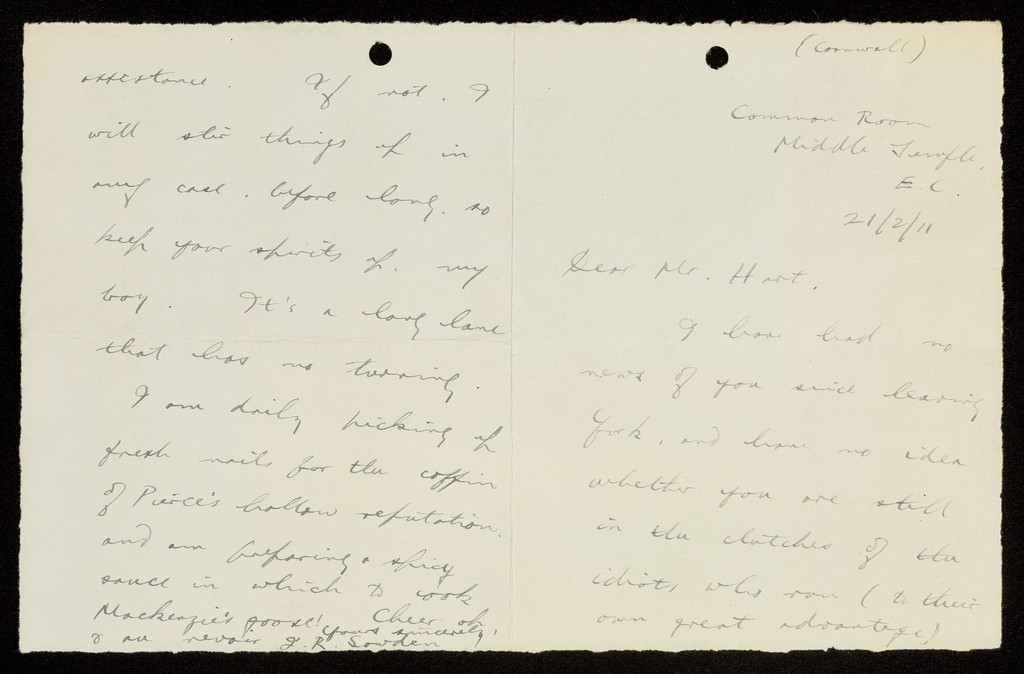 (Cornwall)
Common Room
Middle Temple,
E.C.
21/2/11
Dear Mr. Hart,
I have had no
news of you since leaving
York, and have no idea
whether you are still
in the clutches of the
idiots who run (to their
own great advantage)
assistance. If not, I
will stir things up in
any case, before long, so
keep your spirits up, my
boy. It's a long lane
that has no turning.
I am daily picking up
fresh nails for the coffin
of Pierce's hollow reputation,
and am preparing a spicy
sauce in which to cook
Mackenzie's goose! Cheer oh,
& au revoir Yours sincerely,
J. R. Sowden